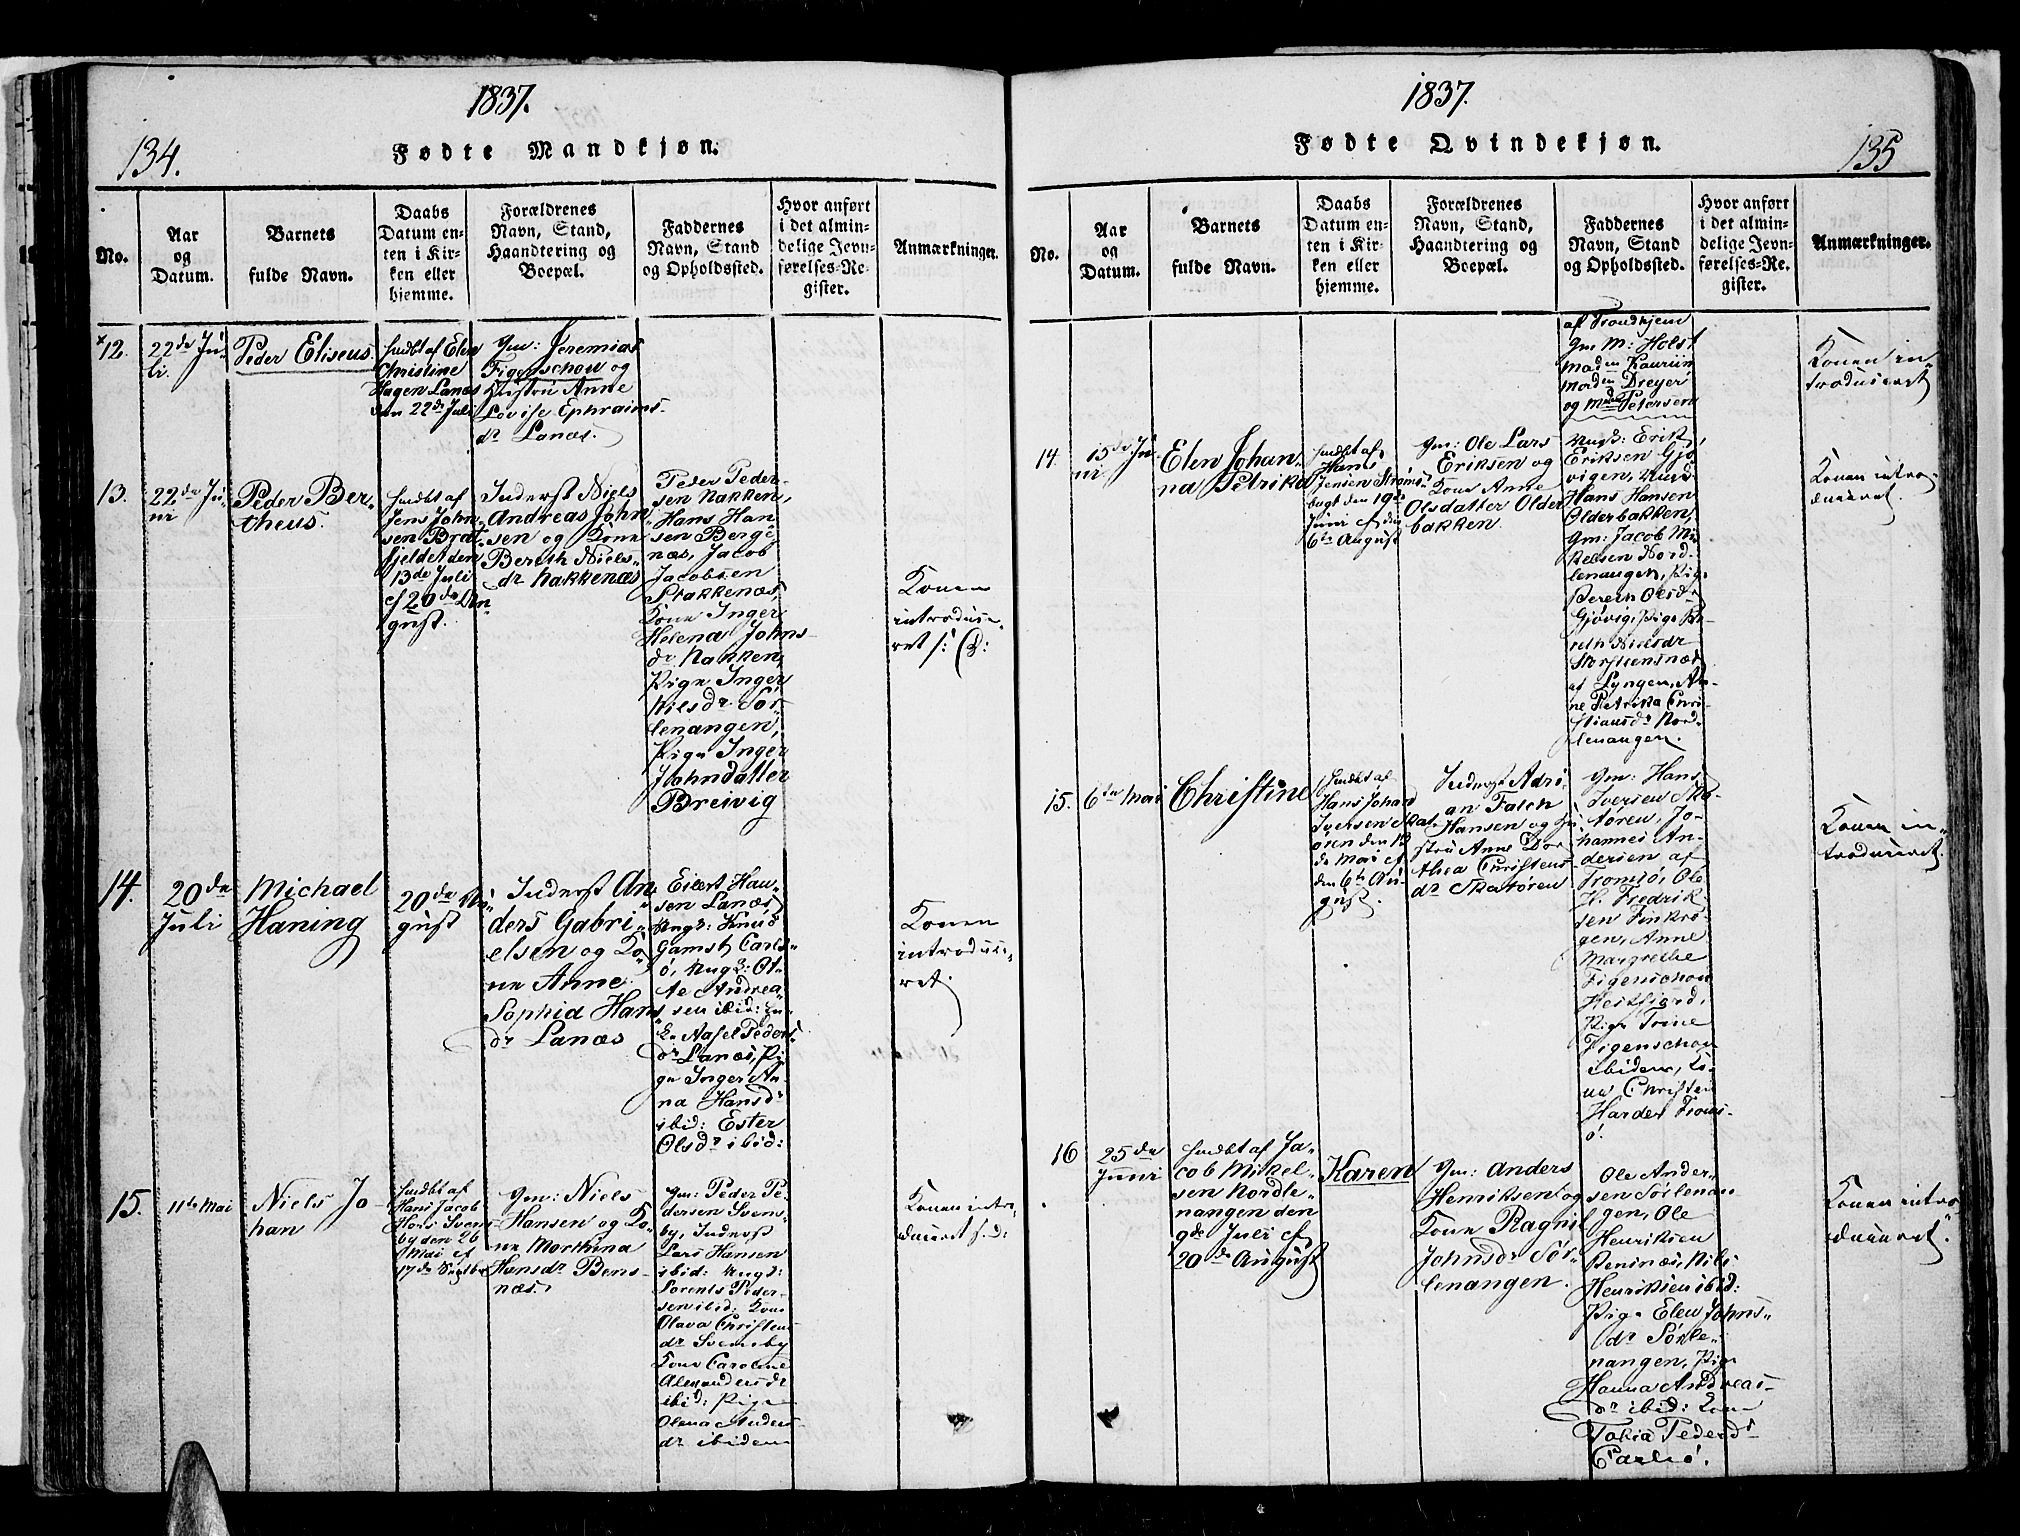 1837.
134.
Fødte Mandkjøn.
No.
Aar
og
Datum.
Barnets
fulde Navn.
Daabs
Datum en-
ten i Kir-
ken eller
hjemme.
Forældrenes
Navn, Stand,
Haandtering og
Boepæl.
Faddernes
Navn, Stand
og Opholdssted.
Hvor anført
i det almin-
delige Jevn-
førelses-Re-
gister.
Anmærkninger.
12.
22de Ju-
li.
Peder Eliseus.
hmdbt af Elen
Christine
Hagen Lanæs
den 22de Juli
Gm: Jeremias
Figenschou og
Hustru Anne
Lovise Ephraims-
dr Lanæs.
13.
22de Ju-
ni
Peder Ber-
theus.
hmdbt af
Jens John-
sen Brat-
fjeldet den
13de Juli
cf 20de Au-
gust.
Inderst Niels
Andreas John-
sen og Kone
Bereth Niels-
dr Nakkenæs
Peder Peder-
sen Nakken,
Hans Han-
sen Berge-
næs, Jacob
Jacobsen
Stakkenæs,
Kone Inger
Helena Johns-
dr Nakken,
Pige Inger
Nilsdr Sør-
lenangen,
Pige Inger
Johndatter
Breivig
Konen
introduse-
ret
14.
20de
Juli
Michael
Haning
20de Au-
gust
Inderst An-
ders Gabri-
elsen og Ko-
ne Anne
Sophia Hans
dr Lanæs
Eilert Han-
sen Lanæs
Ungk: Knud
Gamst Carls-
ø, Ungk: Ot-
te Andrea-
sen ibid:
Axsel Peders-
dr Lanæs, Pi-
ge Inger An-
na Hansdr
ibid: Ester
Olsdr ibid:
Konen
introduse-
ret
15.
11te Mai
Niels Jo-
han
hmdbt af
Hans Jacob
Hois Svens-
by den 26
Mai cf
17de Septbr
Gm: Niels
Hansen og Ko-
ne Morthina
Hansdr Bens-
næs.
Gm: Peder Pe-
dersen Svens-
by, Inderst
Lars Hansen
ibid: Ungk:
Lorents Peder-
sen ibid: Kone
Olava Christens
dr Svensby
Kone Caroline
Alexandersdr
ibid: Pige
Olena Anders-
dr ibidem
Konen intro-
duceret
1837.
135
Fødte Qvindekjøn.
No.
Aar
og
Datum.
Barnets
fulde Navn.
Daabs
Datum en-
ten i Kir-
ken eller
hjemme.
Forældrenes
Navn, Stand,
Haandtering og
Boepæl.
Faddernes
Navn, Stand
og Opholdssted.
Hvor anført
i det almin-
delige Jevn-
førelses-Re-
gister.
Anmærkninger.
af Trondhjem
Gm M: Holst
Maden Kaurin
Maden Dreyer
og Mad Petersen
Konen in-
troduseret
14.
15de Ju-
ni
Elen Johan-
na Petrika
hmdbt af
Hans
Jensen Strøms-
bugt den 19de
Juni cf den
6te August
Gm: Ole Lars
Eriksen og
Kone Anne
Olsdatter Older
bakken.
Ungk: Erik
Eriksen Gjø-
vigen, Ungk
Hans Hansen
Olderbakken,
Gm: Jacob Mi-
kelsen Nord-
lenangen, Pige
Bereth Olsdr
Gjøvig, Pige Be-
reth Nielsdr
Storstensnæs
af Lyngen, An-
ne Petrika Chri-
stiansdr Nord-
lenangen.
Konen intro-
duceret.
15.
6te Mai
Christine
hmdbt af
Hans Johan
Iversen Skat-
øren den 13
de Mai cf
den 6te Au-
gust.
Inderst Adri-
an Falch
Hansen og Hu-
stru Anne Dor-
thea Christens
dr Skatøren
Gm: Hans
Iversen Ska-
tøren, Jo-
hannes An-
dersen af
Tromsø, Ole
H. Fredrik-
sen Finkro-
gen, Anne
Margrethe
Figenschou
Heitfjord,
Pige Trine
Figenschou
ibidem, Ko-
ne Christen
Harder Troms-
ø.
Konen in-
troduceret.
16
25de
Juni
hmdbt af Ja-
cob Mikel-
sen Nordle-
nangen den
9de Juli cf
20de August
Karen
Gm: Anders
Henriksen og
Kone Ragnil
Johnsdr Sør-
lenangen.
Ole Ander-
sen Sørlenan-
gen, Ole
Henriksen
Bensnæs, Nils
Henriksen ibid:
Pige Elen Johns-
dr Sørle-
nangen, Pige
Hanna Andreas-
dr ibid: Kone
Tobia Pedersdr
Carlsø.
Konen intro-
duceret.